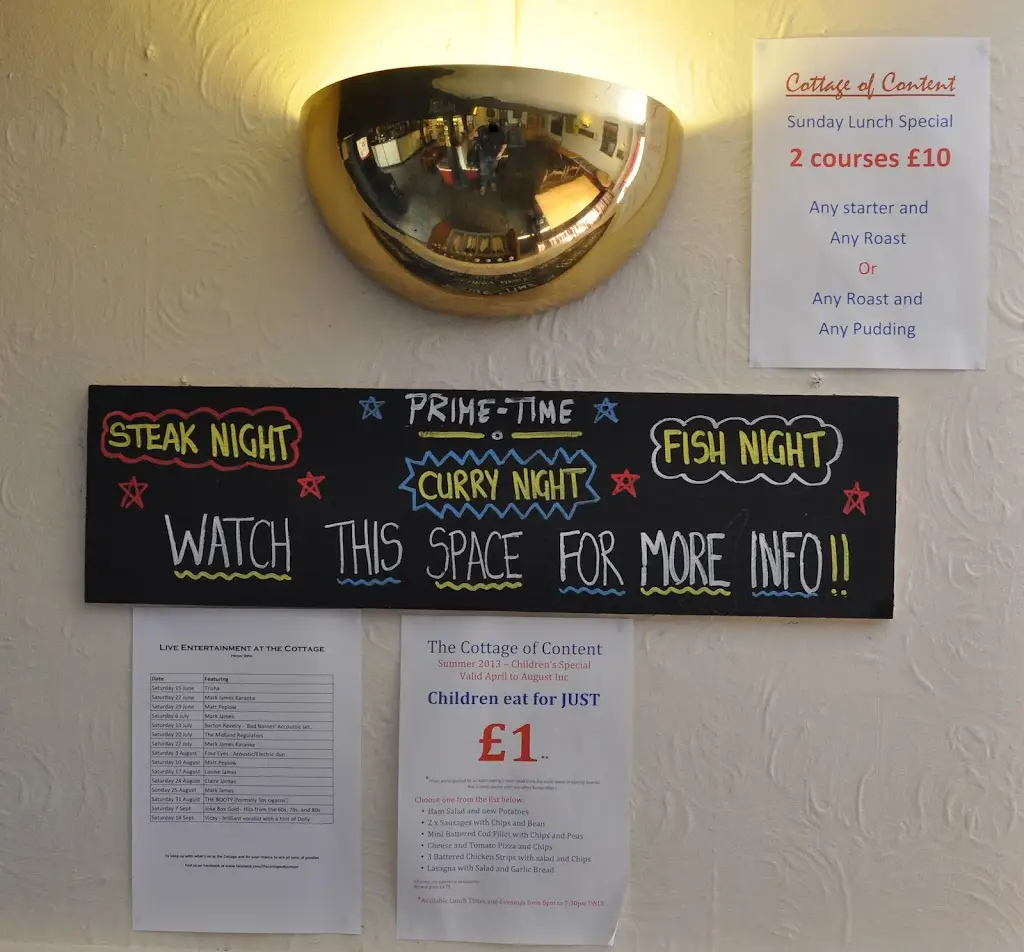 Cottage of Content
Sunday Lunch Special
2 courses £10
Any starter and
Any Roast
Or
Any Roast and
Any Pudding
STEAK NIGHT
PRIME-TIME
CURRY NIGHT
FISH NIGHT
WATCH THIS SPACE FOR MORE INFO!!
LIVE ENTERTAINMENT AT THE COTTAGE
Date Featuring
Saturday 15 June Trisha
Saturday 22 June Mark James Karaoke
Saturday 29 June Matt Peplow
Saturday 6 July Mark James
Saturday 13 July
Saturday 20 July The Midland Regulators
Saturday 27 July Mark James Karaoke
Saturday 3 August Four Eyes - Acoustic/Electric duo
Saturday 10 August Matt Peplow
Saturday 17 August Louise James
Saturday 24 August Claire James
Sunday 25 August Mark James
Saturday 31 August THE BOOTY (formally
Saturday 7 Sept Juke Box Gold - Hits from the 60s, 70s, and 80s
Saturday 14 Sept - brilliant vocalist with a hint of Dolly
The Cottage of Content
Summer 2013 – Children's Special
Valid April to August Inc
Children eat for JUST
£1
Choose one from the list below:
• Ham Salad and new Potatoes
• 2 x Sausages with Chips and Bean
• Mini Battered Cod Fillet with Chips and Peas
• Cheese and Tomato Pizza and Chips
• 3 Battered Chicken Strips with salad and Chips
• Lasagna with Salad and Garlic Bread
*Available Lunch Times and Evenings from 6pm to 7:30pm ONLY